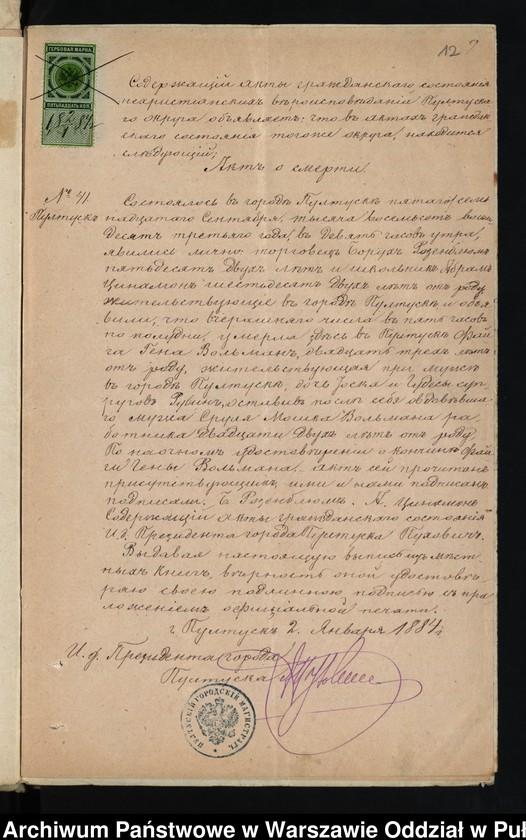 12 7
ГЕРБОВАЯ МАРКА
ПЯТЬНАДЦАТЬ КОП.
18 2/I 84
Содержащій акты гражданскаго состоянія
нехристіанскихъ вѣроисповѣданій Пултуска
го округа объявляетъ: что въ актахъ граждан
скаго состоянія тогоже округа, находится
слѣдующій;
Актъ о смерти.
№ 41.
Пултускъ
Состоялось въ городѣ Пултускѣ пятаго/сем
надцатаго Сентября, тысяча восемьсотъ восем
десятъ третьяго года, въ девять часовъ утра,
явились лично: торговецъ Борухъ Розенблюмъ
пятьдесятъ двухъ лѣтъ и школьникъ Абрамъ
Цинамонъ шестьдесятъ двухъ лѣтъ отъ роду
жительствующіе въ городѣ Пултускѣ и объя
вили, что вчерашняго числа въ пять часовъ
по полудни, умерла здѣсь въ Пултускѣ Фай
га Гена Вольманъ, двадцать трехъ лѣтъ
отъ роду, жительствующая при мужѣ
въ городѣ Пултускѣ, дочь Іоска и супруговъ
оставивъ послѣ себя овдовѣвша
го мужа Сруля Мошка Вольмана ра
ботника двадцати двухъ лѣтъ отъ роду.
По наочномъ удостовѣреніи о кончинѣ Фай
ги Гены Вольмана. актъ сей прочитанъ
присутствующимъ, ими и нами подписанъ.
подписали: Б. Розенблюмъ. А. Цинамонъ
Содержащій акты гражданскаго состоянія
И.д. Президента города Пултуска
Выдавая настоящую выпись изъ мѣст
ныхъ книгъ, вѣрность оной удостовѣ
ряю своею подлинною подписью съ при
ложеніемъ оффиціальной печати.
г. Пултускъ 2. Января 1884 г.
И. д. Президента города
Пултуска
ПУЛТУСКІЙ ГОРОДСКІЙ МАГИСТРАТЪ
Archiwum Państwowe w Warszawie Oddział w Puł